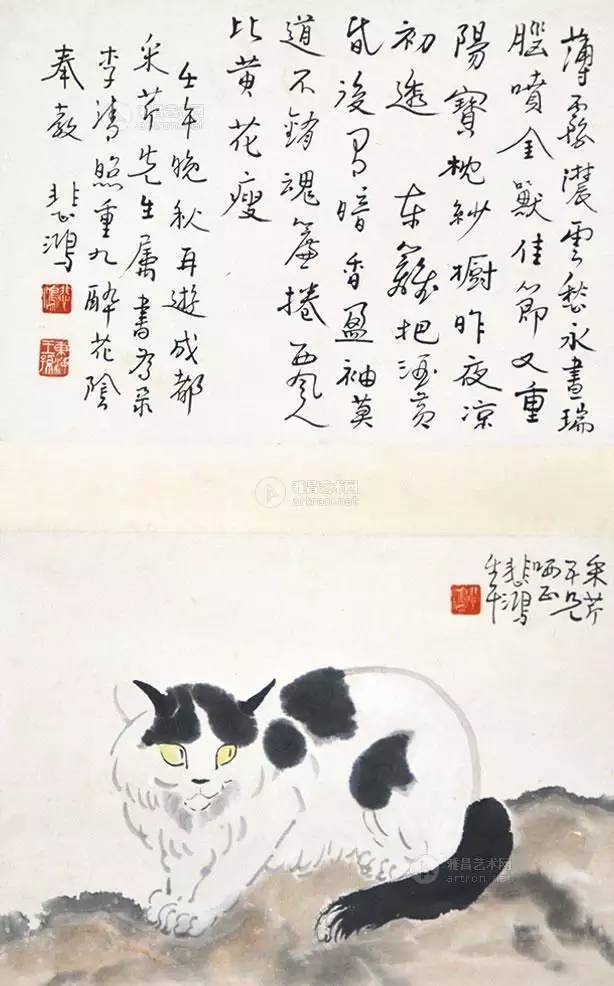 薄霧濃雲愁永晝瑞
腦噴金獸佳節又重
陽寶枕紗橱昨夜涼
初透 東籬把酒黄
昏後有暗香盈袖莫
道不銷魂簾捲西風人
比黄花瘦
壬午晚秋再遊成都
采芹先生属書為录
李清照重九醉花陰
奉教 悲鴻
悲鴻
東海王孫
采芹
吾兄
哂正
悲鴻
壬午
雅昌艺术网
artron.net
雅昌艺术网
artron.net